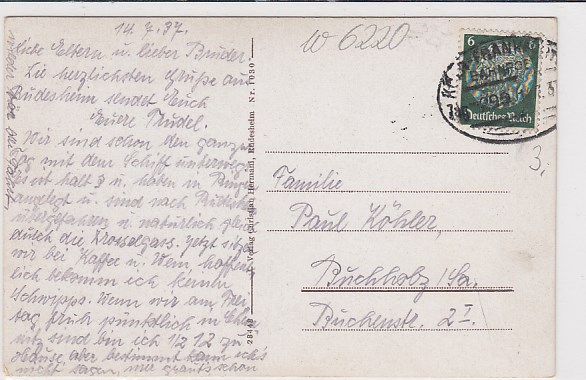 14.7.37.
Liebe Eltern u. lieber Bruder.
Die herzlichsten Grüße aus
Rüdesheim sendet Euch
Euere Trudel.
Wir sind schon den ganzen
Tag mit dem Schiff unterwegs
halt u. haben in Bingen
angelegt u. sind nach Rüdesheim
übergefahren u. natürlich gleich
durch die Drosselgass. Jetzt sitzen
wir bei Kaffee u. Wein, hoffent-
lich bekomm ich keinen
Schwipps. Wenn wir am
tag früh pünktlich in
nitz sind bin ich 1/2 12 zu
Hause aber bestimmt kann ich's
nicht sagen, schon
Verlag Christian Hermann, Rüdesheim Nr. 1030
28449
W 6220
6
Deutsches Reich
3.
Familie
Paul Köhler,
Buchholz/Sa.
Buchenstr. 2 I.